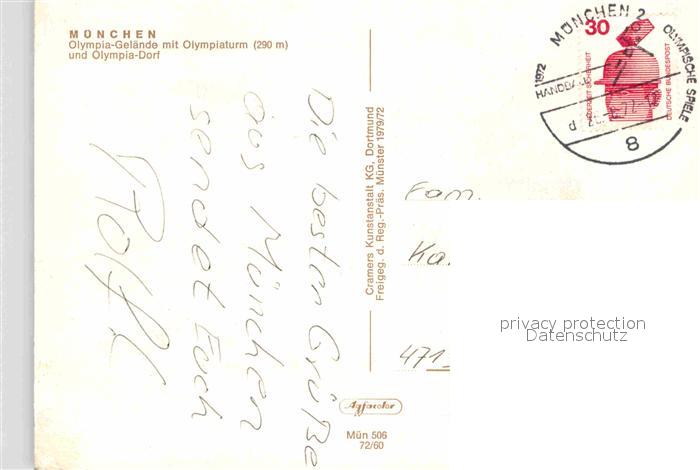 MÜNCHEN
Olympia-Gelände mit Olympiaturm (290 m)
und Olympia-Dorf
Die besten Grüße
aus München
sendet Euch
Rolf
Cramers Kunstanstalt KG, Dortmund
Freigeg. d. Reg.-Präs. Münster 1979/72
Agfacolor
Mün 506
72/60
MÜNCHEN 2
OLYMPISCHE SPIELE
1972
8
30
JEDERZEIT SICHERHEIT
DEUTSCHE BUNDESPOST
Fam.
Ka.
471
privacy protection
Datenschutz